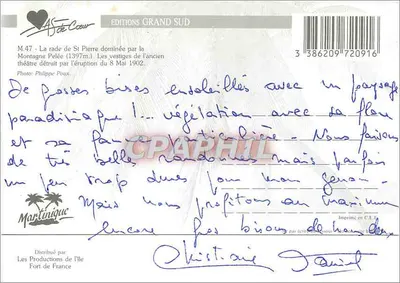 As de Cœur
EDITIONS GRAND SUD
M.47 - La rade de St Pierre dominée par la
Montagne Pelée (1397m). Les vestiges de l'ancien
théâtre détruit par l'éruption du 8 Mai 1902.
Photo: Philippe Poux
3 386209 720916
De grosses bises ensoleillées avec un paysage
paradisiaque !... végétation avec sa flore
et sa faune particulière - Nous faisons
de très belles randonnées mais parfois
un peu trop dures pour mon genou -
Mais nous profitons au maximum
encore gros bisous de nous deux
Christiane Daniel
CPAPHIL
Martinique
Distribué par
Les Productions de l'Ile
Fort de France